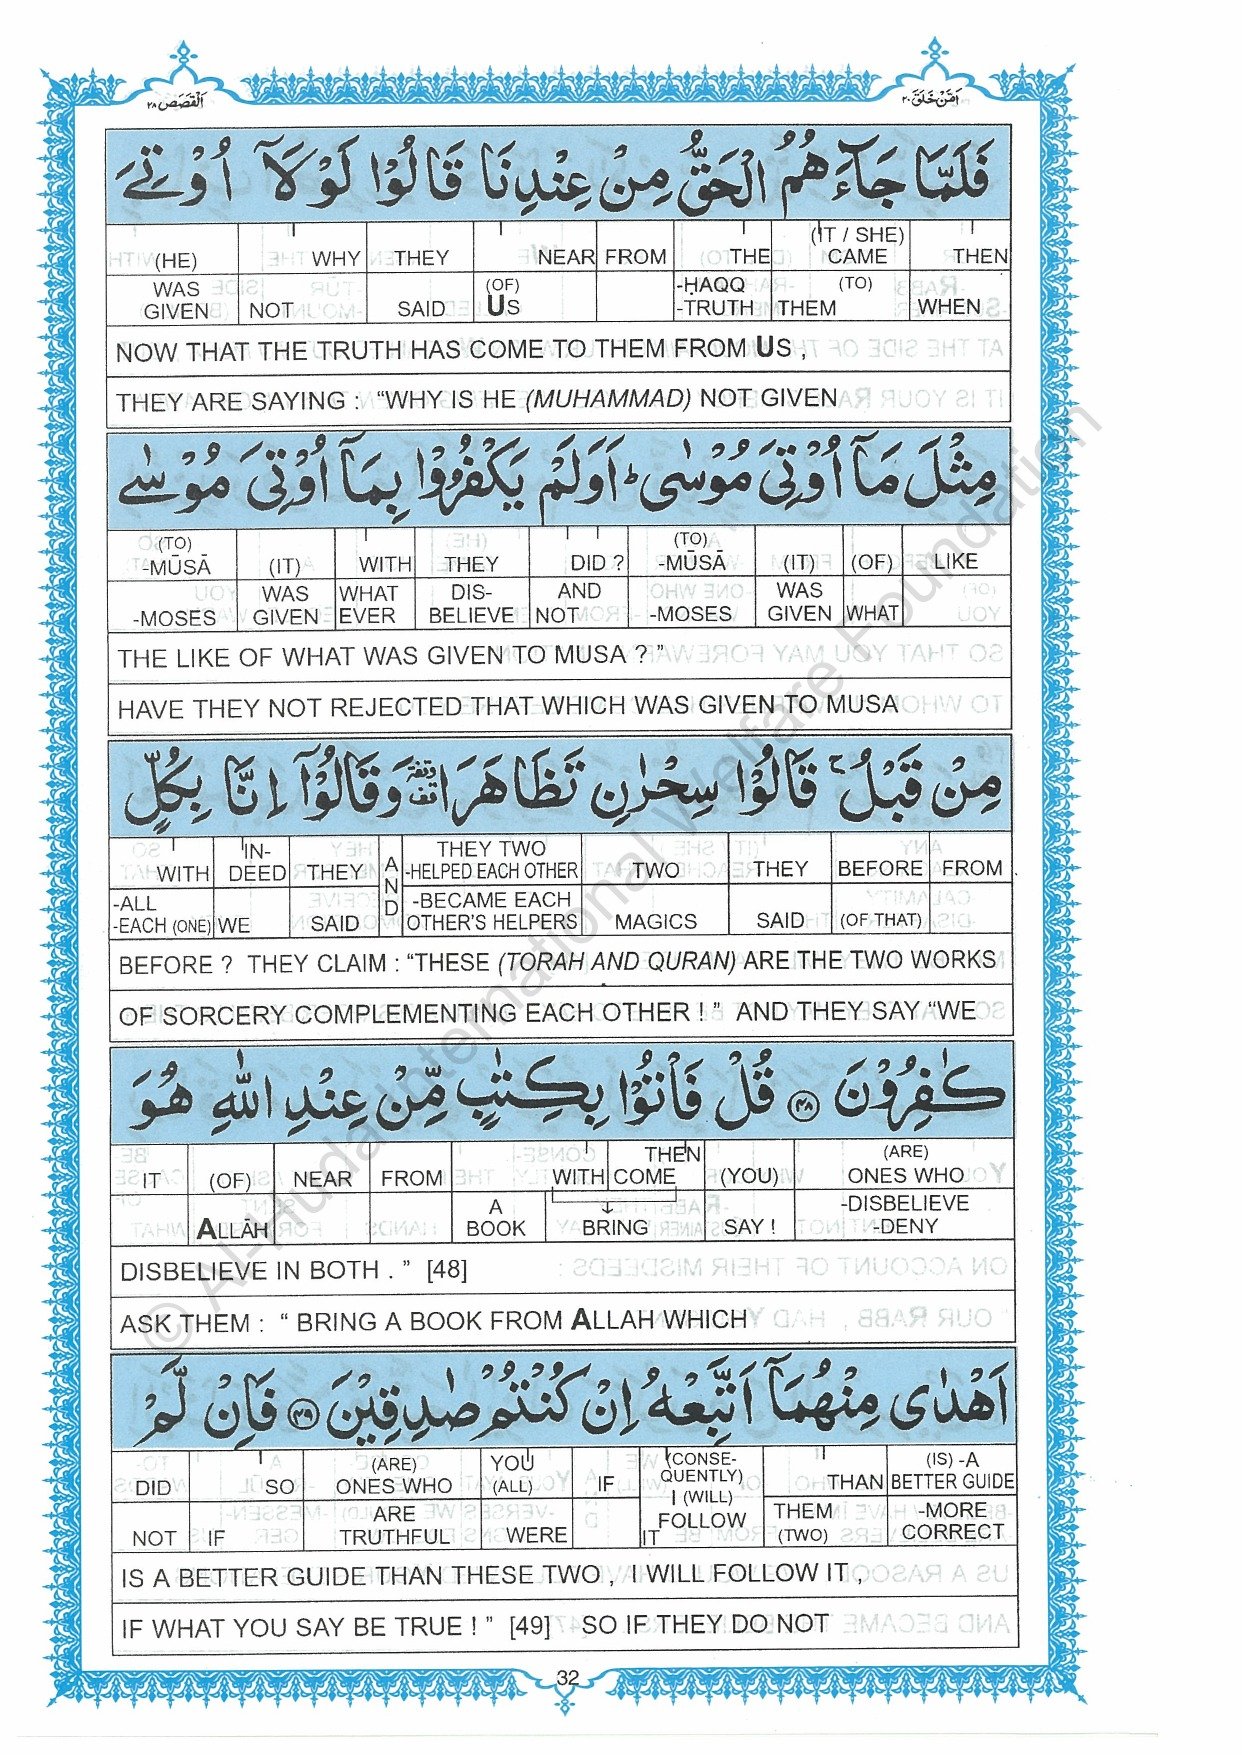 اَلْقَصَص ٢٨
اَمَّنْ خَلَقَ ٢٠
فَلَمَّا جَآءَهُمُ الْحَقُّ مِنْ عِنْدِنَا قَالُوْا لَوْلَاۤ اُوْتِیَ
(HE) WHY THEY NEAR FROM THE (IT / SHE) CAME THEN
WAS GIVEN NOT SAID (OF) US -ḤAQQ -TRUTH THEM (TO) WHEN
NOW THAT THE TRUTH HAS COME TO THEM FROM US ,
THEY ARE SAYING : “WHY IS HE (MUHAMMAD) NOT GIVEN
مِثْلَ مَاۤ اُوْتِیَ مُوْسٰی ؕ اَوَلَمْ یَكْفُرُوْا بِمَاۤ اُوْتِیَ مُوْسٰی
(TO) -MŪSĀ (IT) WITH THEY DID ? (TO) -MŪSĀ (IT) (OF) LIKE
-MOSES WAS GIVEN WHAT EVER DIS- BELIEVE AND NOT -MOSES WAS GIVEN WHAT
THE LIKE OF WHAT WAS GIVEN TO MUSA ? ”
HAVE THEY NOT REJECTED THAT WHICH WAS GIVEN TO MUSA
مِنْ قَبْلُ ۚ قَالُوْا سِحْرٰنِ تَظَاهَرَا وقفة قف وَقَالُوْۤا اِنَّا بِكُلٍّ
WITH IN- DEED THEY AND THEY TWO -HELPED EACH OTHER TWO THEY BEFORE FROM
-ALL -EACH (ONE) WE SAID -BECAME EACH OTHER'S HELPERS MAGICS SAID (OF THAT)
BEFORE ? THEY CLAIM : “THESE (TORAH AND QURAN) ARE THE TWO WORKS
OF SORCERY COMPLEMENTING EACH OTHER ! ” AND THEY SAY “WE
كٰفِرُوْنَ ﴿٤٨﴾ قُلْ فَاْتُوْا بِكِتٰبٍ مِّنْ عِنْدِ اللّٰهِ هُوَ
IT (OF) NEAR FROM WITH THEN COME (YOU) (ARE) ONES WHO
ALLĀH A BOOK ↓ BRING SAY ! -DISBELIEVE -DENY
DISBELIEVE IN BOTH . ” [48]
ASK THEM : “ BRING A BOOK FROM ALLAH WHICH
اَهْدٰی مِنْهُمَاۤ اَتَّبِعْهُ اِنْ كُنْتُمْ صٰدِقِیْنَ ﴿٤٩﴾ فَاِنْ لَّمْ
DID SO (ARE) ONES WHO YOU (ALL) IF (CONSE- QUENTLY) I (WILL) THAN (IS) -A BETTER GUIDE
NOT IF ARE TRUTHFUL WERE IT FOLLOW THEM (TWO) -MORE CORRECT
IS A BETTER GUIDE THAN THESE TWO , I WILL FOLLOW IT ,
IF WHAT YOU SAY BE TRUE ! ” [49] SO IF THEY DO NOT
32
© Al-Huda International Welfare Foundation